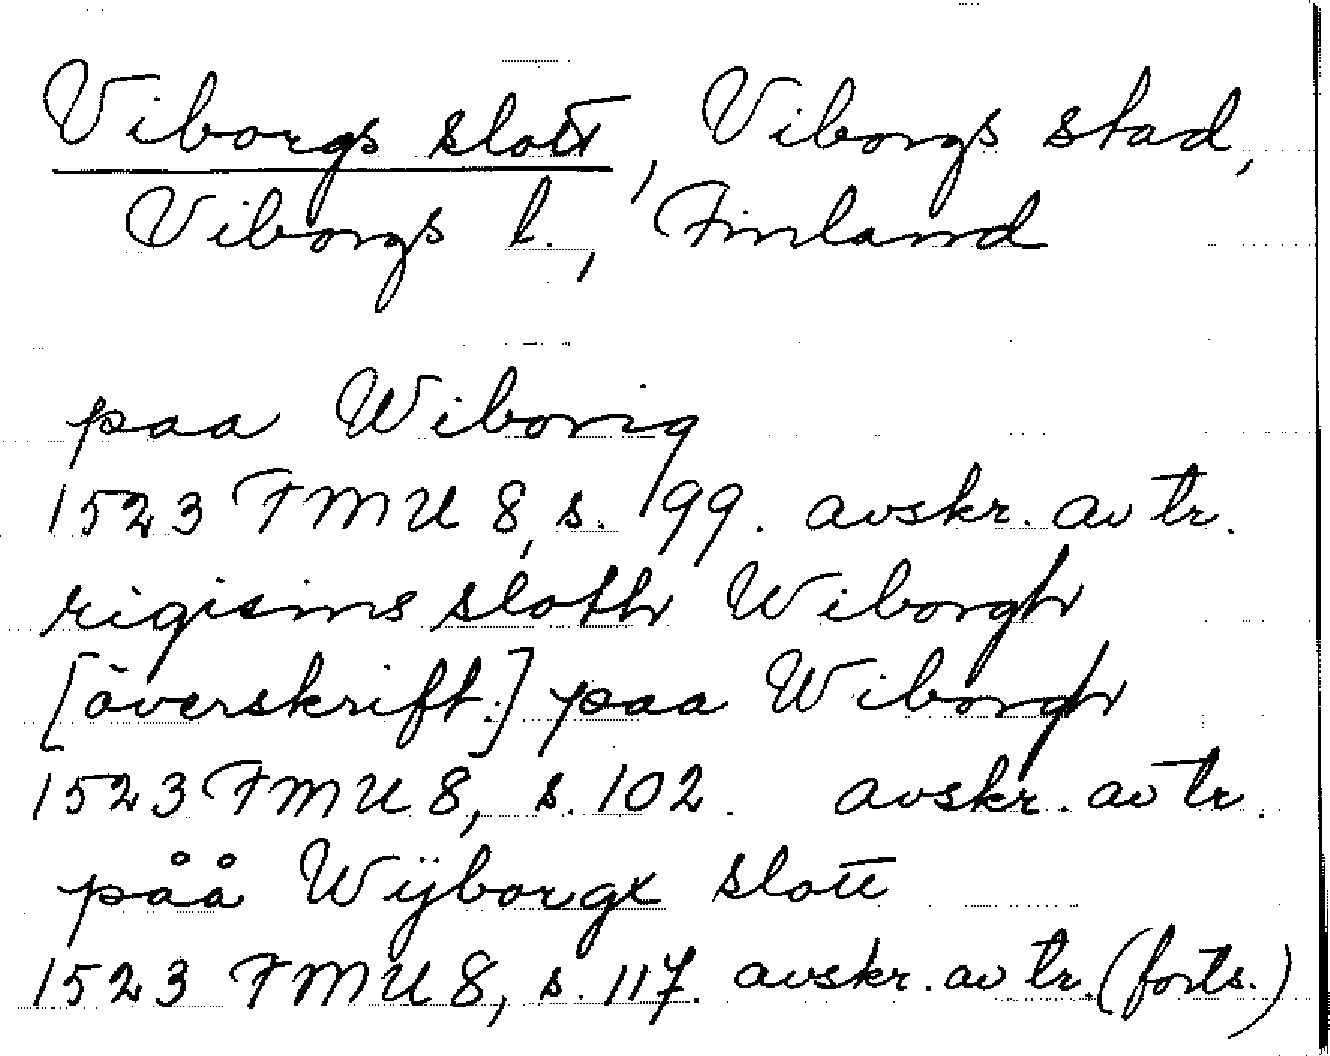 Viborgs slott, Viborgs stad,
Viborgs l., Finland
paa Wiborig
1523 FMU 8, s. 99. avskr. av tr.
rigisins sloth Wiborgh
[överskrift.] paa Wiborgh
1523 FMU 8, s. 102. avskr. av tr.
påå Wÿborgx slott
1523 FMU 8, s. 117. avskr. av tr. (forts.)